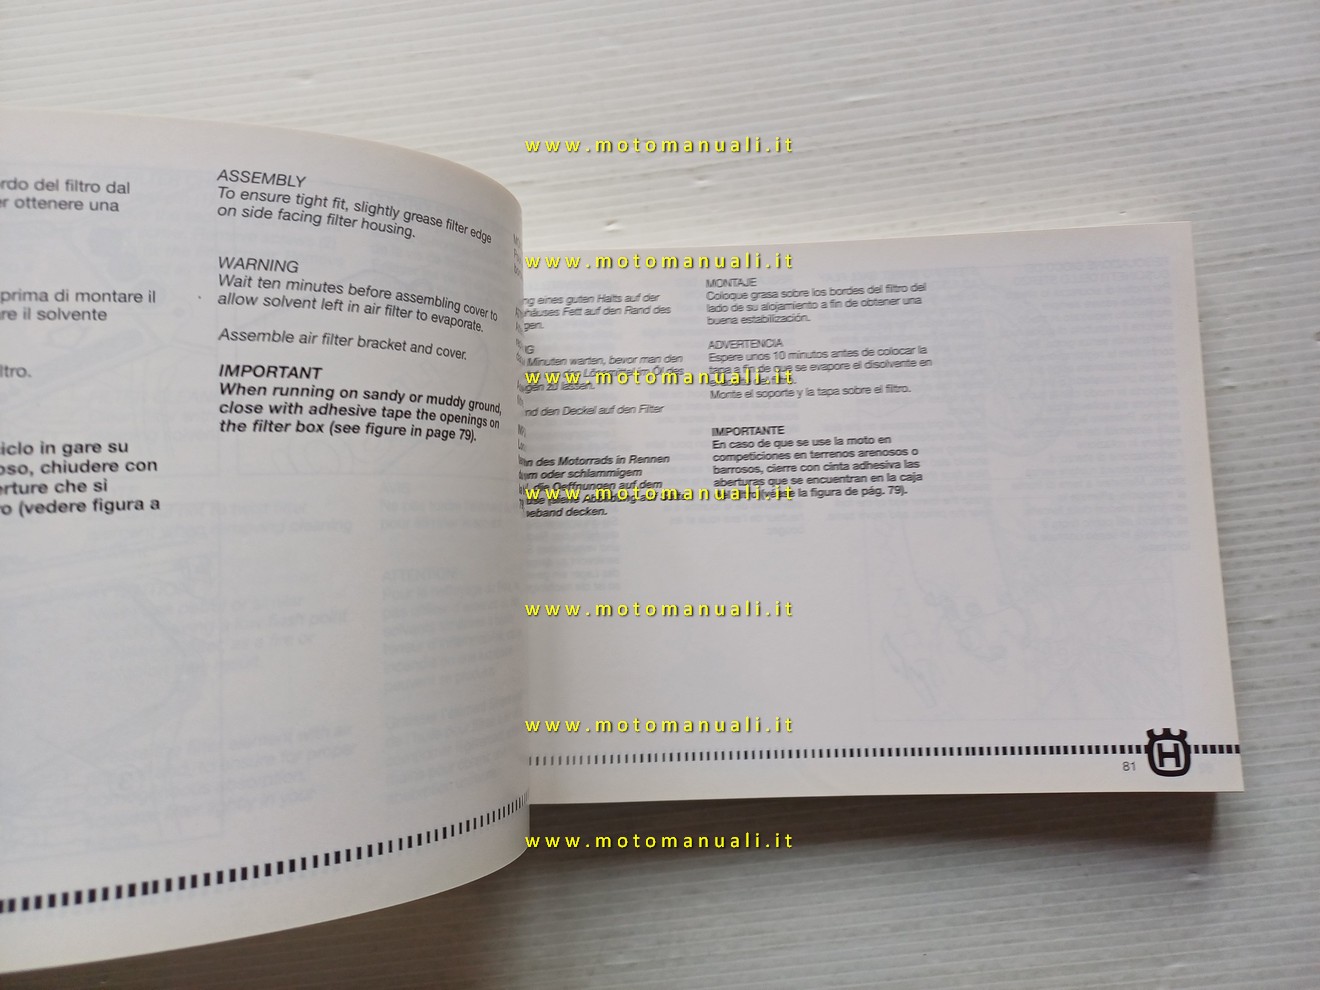 rdo del filtro dal
er ottenere una
prima di montare il
re il solvente
ltro.
iclo in gare su
oso, chiudere con
erture che si
o (vedere figura a
ASSEMBLY
To ensure tight fit, slightly grease filter edge
on side facing filter housing.
WARNING
Wait ten minutes before assembling cover to
allow solvent left in air filter to evaporate.
Assemble air filter bracket and cover.
IMPORTANT
When running on sandy or muddy ground,
close with adhesive tape the openings on
the filter box (see figure in page 79).
ng eines guten Halts auf der
häuses Fett auf den Rand des
gen.
NG
Minuten warten, bevor man den
gen zu lassen.
nd den Deckel auf den Filter
n des Motorrads in Rennen
em oder schlammigem
die Oeffnungen auf dem
eband decken.
MONTAJE
Coloque grasa sobre los bordes del filtro del
lado de su alojamiento a fin de obtener una
buena estabilización.
ADVERTENCIA
Espere unos 10 minutos antes de colocar la
tapa a fin de que se evapore el disolvente en
Monte el soporte y la tapa sobre el filtro.
IMPORTANTE
En caso de que se use la moto en
competiciones en terrenos arenosos o
barrosos, cierre con cinta adhesiva las
aberturas que se encuentran en la caja
la figura de pág. 79).
81
H
www.motomanuali.it
www.motomanuali.it
www.motomanuali.it
www.motomanuali.it
www.motomanuali.it
www.motomanuali.it
www.motomanuali.it